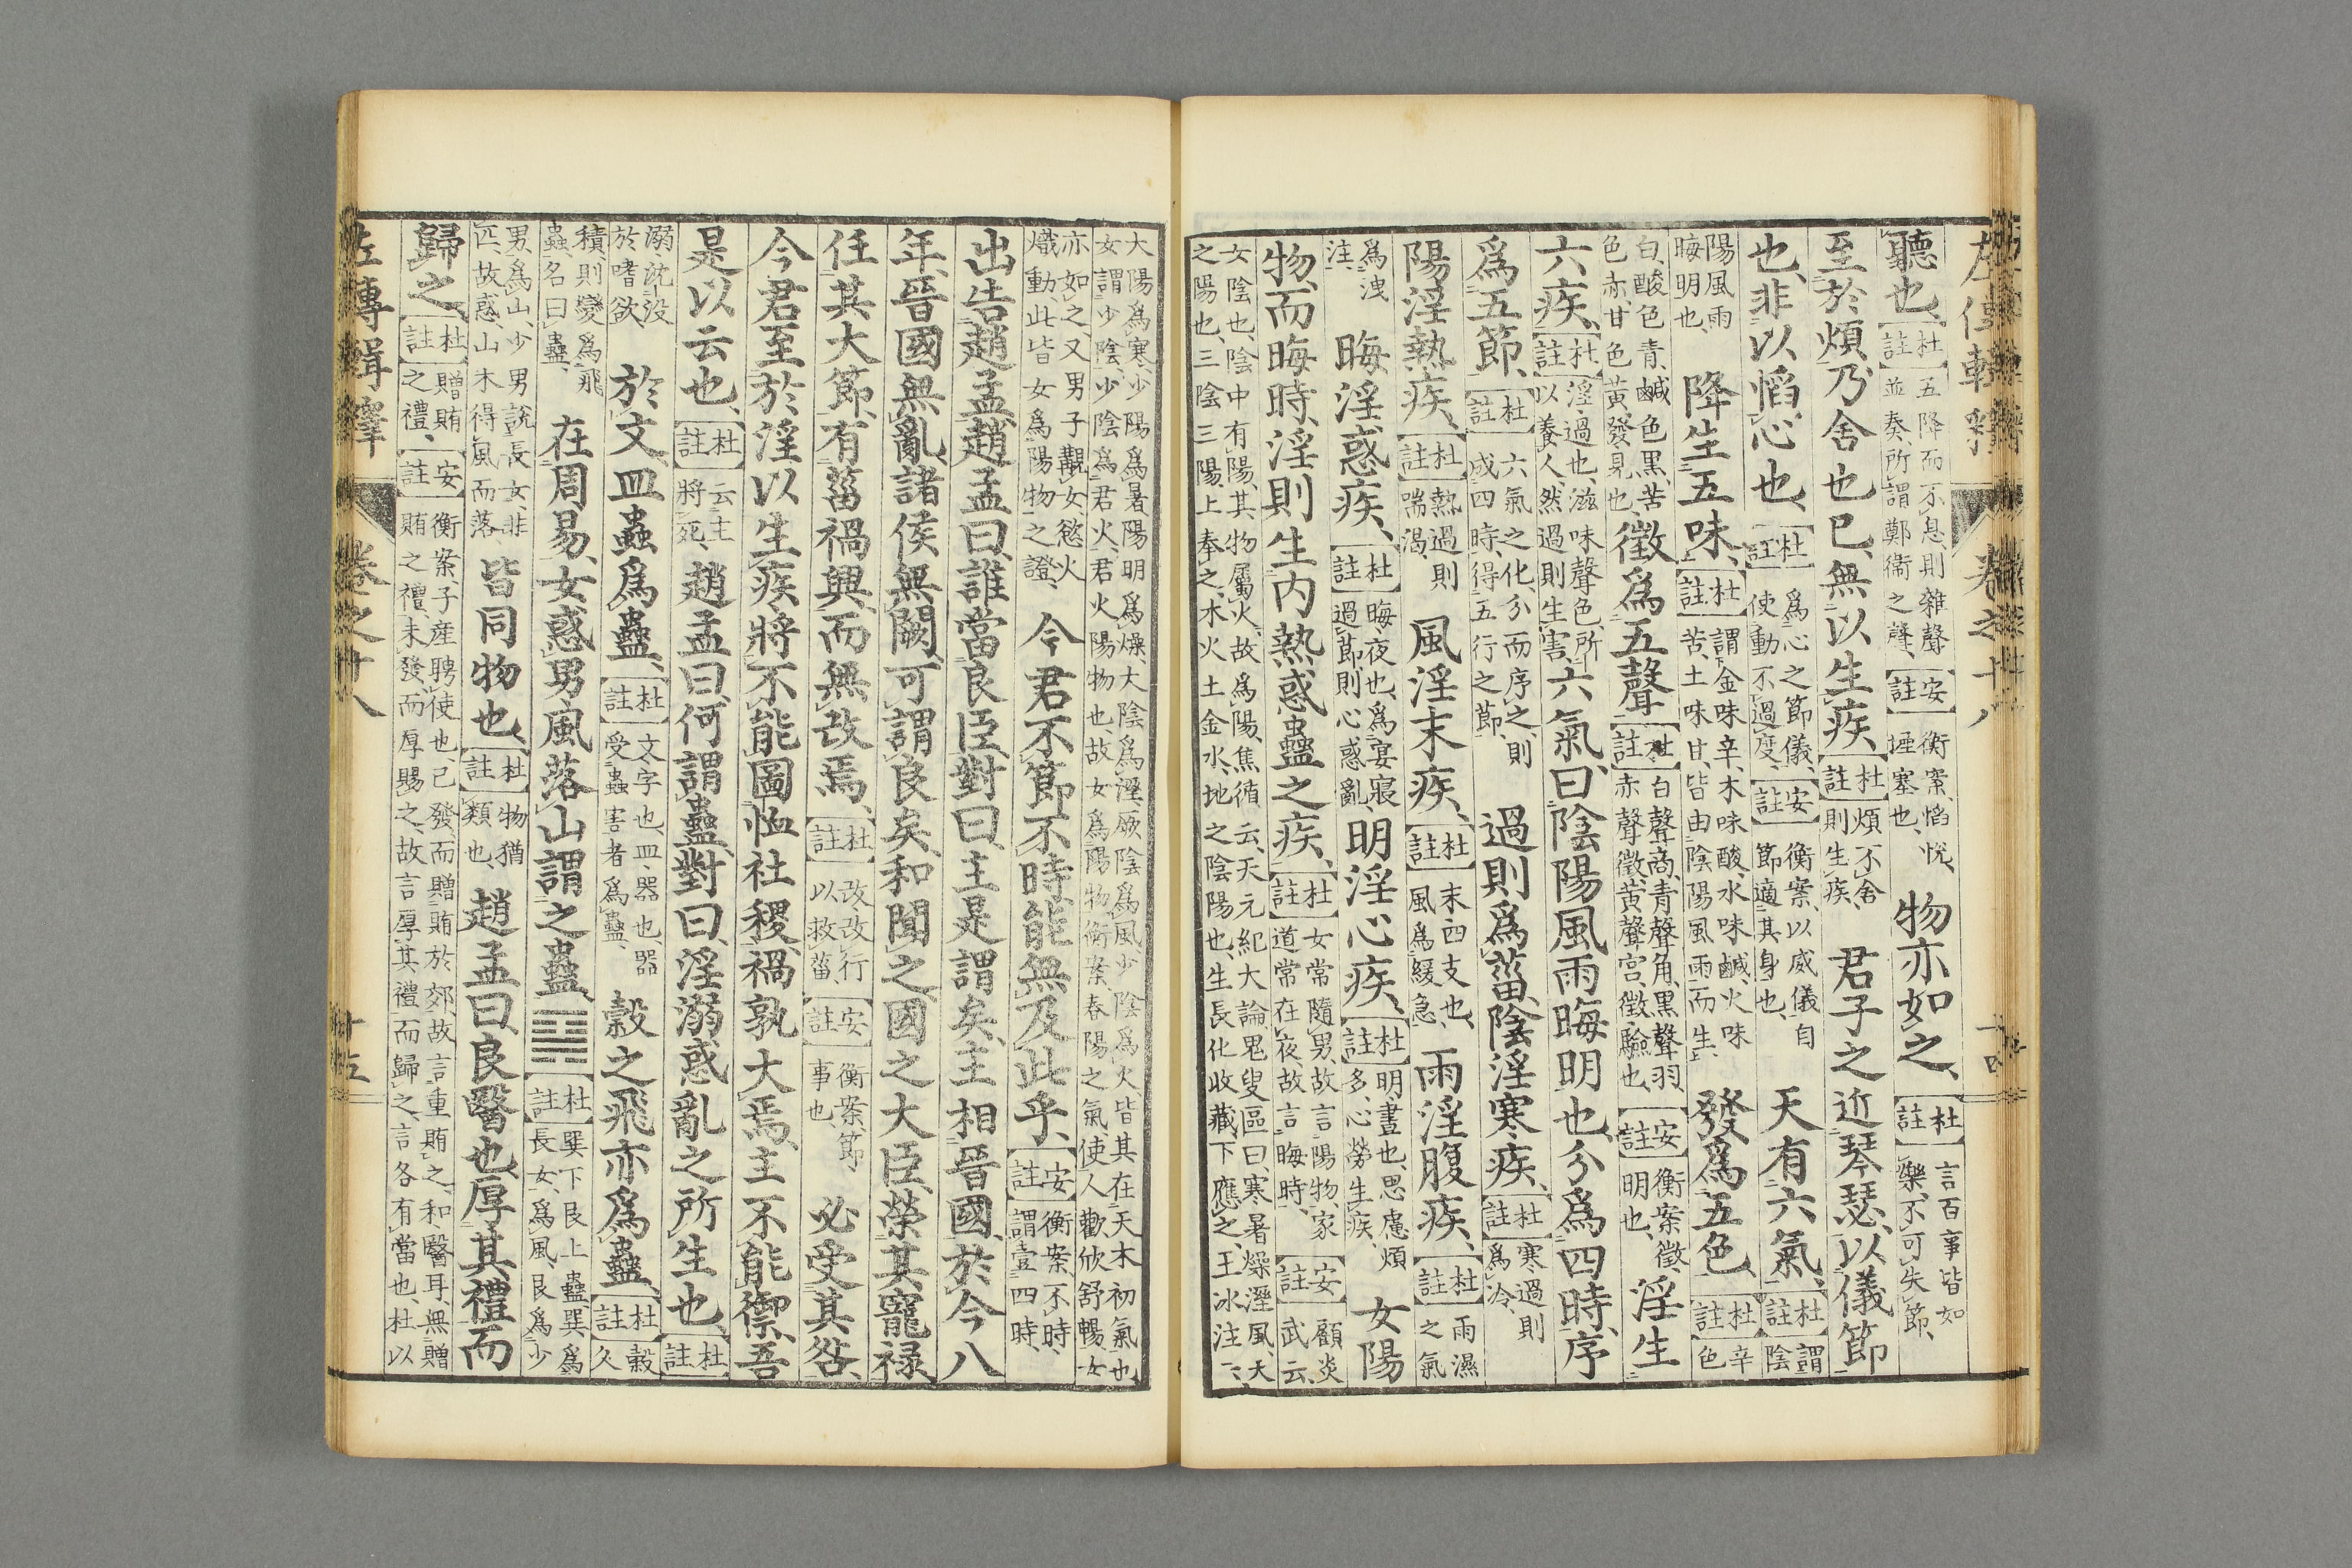 左傳輯釋 卷之十八 十四
聽也、杜註五降而不息則雜聲並奏、所謂鄭衞之聲、安註衡案、慆悅、堙塞也、物亦如之、杜註言百事皆如樂、不可失節、
至於煩、乃舍也已、無以生疾、杜註煩不舍則生疾、君子之近琴瑟、以儀節
也、非以慆心也、杜註爲心之節儀、使動不過度、安註衡案、以威儀自節適其身也、天有六氣、杜註謂陰
陽風雨晦明也、降生五味、杜註謂金味辛、木味酸、水味鹹、火味苦、土味甘、皆由陰陽風雨而生、發爲五色、杜註辛色
白、酸色青、鹹色黑、苦色赤、甘色黃、發見也、徵爲五聲、杜註白聲商、青聲角、黑聲羽、赤聲徵、黃聲宮、徵驗也、安註衡案、徵明也、淫生
六疾、杜註淫過也、滋味聲色、所以養人、然過則生害、六氣曰陰陽風雨晦明也、分爲四時、序
爲五節、杜註六氣之化、分而序之、則成四時、得五行之節、過則爲菑、陰淫寒疾、杜註寒過則爲冷、
陽淫熱疾、杜註熱過則喘渴、風淫末疾、杜註末四支也、風爲緩急、雨淫腹疾、杜註雨濕之氣
爲洩注、晦淫惑疾、杜註晦夜也、爲宴寢過節則心惑亂、明淫心疾、杜註明晝也、思慮煩多、心勞生疾、女陽
物而晦時、淫則生內熱惑蠱之疾、杜註女常隨男、故言陽物、家道常在夜、故言晦時、安註顧炎武云、
女陰也、陰中有陽、其物屬火、故爲陽、焦循云、天元紀大論鬼臾區曰、寒暑燥溼風、天之陽也、三陰三陽上奉之、木火土金水、地之陰陽也、生長化收藏、下應之、王冰注云、
大陽爲寒、少陽爲暑、陽明爲燥、大陰爲溼、厥陰爲風、少陰爲火、皆其在天、木初氣也、女謂少陰、少陰爲君火、君火陽物也、故女爲陽物、衡案、春陽之氣使人歡欣舒暢、女
亦如之、又男子覩女、慾火熾動、此皆女爲陽物之證、今君不節、不時、能無及此乎、安註衡案、不時、謂壹四時、
出告趙孟、趙孟曰、誰當良臣、對曰、主是謂矣、主相晉國、於今八
年、晉國無亂、諸侯無闕、可謂良矣、和聞之、國之大臣、榮其寵祿、
任其大節、有菑禍興、而無改焉、杜註改改行以救菑、安註衡案、節事也、必受其咎、
今君至於淫以生疾、將不能圖恤社稷、禍孰大焉、主不能禦、吾
是以云也、杜註云主將死、趙孟曰、何謂蠱、對曰、淫溺惑亂之所生也、杜註
溺、沈沒於嗜欲、於文皿蟲爲蠱、杜註文字也、皿、器也、器受蟲害者爲蠱、穀之飛亦爲蠱、杜註穀久
積、則變爲飛蟲、名曰蠱、在周易、女惑男、風落山、謂之蠱䷑、杜註巽下艮上蠱、巽爲長女、爲風、艮爲少
男、爲山、少男說長女、非匹、故惑、山木得風而落、皆同物也、杜註物猶類也、趙孟曰、良醫也、厚其禮而
歸之、杜註贈賄之禮、安註衡案、子產聘使也、已發、而贈賄於郊、故言重賄之、和醫耳、無贈賄之禮、未發、而厚賜之、故言厚其禮而歸之、言各有當也、杜以
左傳輯釋 卷之十八 十五